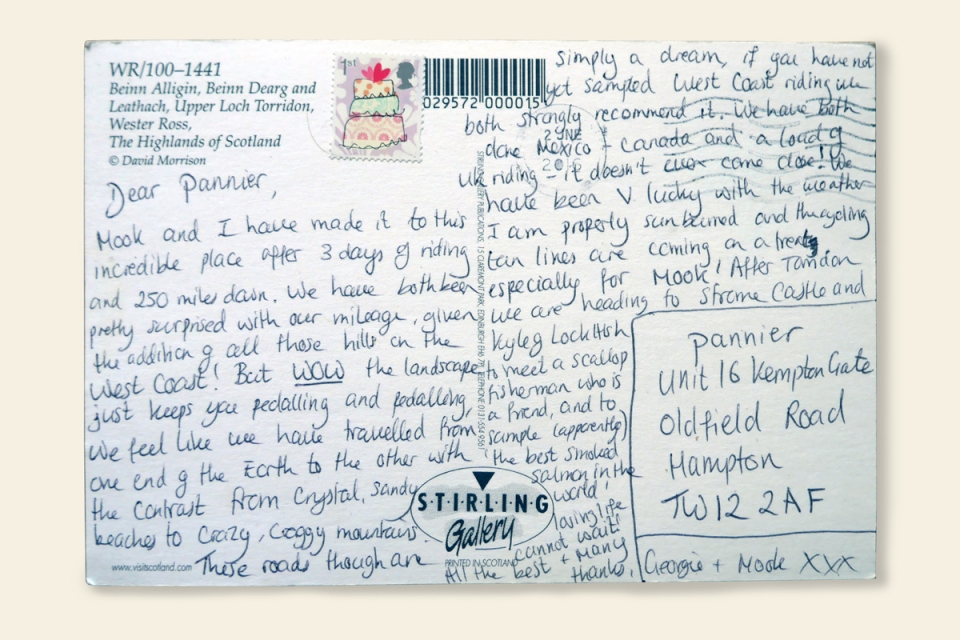 WR/100–1441
Beinn Alligin, Beinn Dearg and
Leathach, Upper Loch Torridon,
Wester Ross,
The Highlands of Scotland
© David Morrison
1st
029572 000015
Dear Pannier,
Mook and I have made it to this
incredible place after 3 days of riding
and 250 miles down. We have both been
pretty surprised with our mileage, given
the addition of all those hills on the
West Coast! But WOW the landscape
just keeps you pedalling and pedalling,
we feel like we have travelled from
one end of the Earth to the other with
the contrast from crystal, sandy
beaches to crazy, craggy mountains.
These roads though are
simply a dream, if you have not
yet sampled West Coast riding we
both strongly recommend it. We have both
done Mexico - Canada and a load of
UK riding - it doesn't ever come close! We
have been V lucky with the weather
I am properly sunburned and the cycling
tan lines are coming on a treat,
especially for Mook! After Torridon
we are heading to Strome Castle and
Kyle of Lochalsh
to meet a scallop
fisherman who is
a friend, and to
sample (apparently)
the best smoked
salmon in the
world!
loving life
cannot wait
All the best + Many
thanks,
Georgie + Mook XXX
Pannier
Unit 16 Kempton Gate
Oldfield Road
Hampton
TW12 2AF
STIRLING
Gallery
PRINTED IN SCOTLAND
www.visitscotland.com